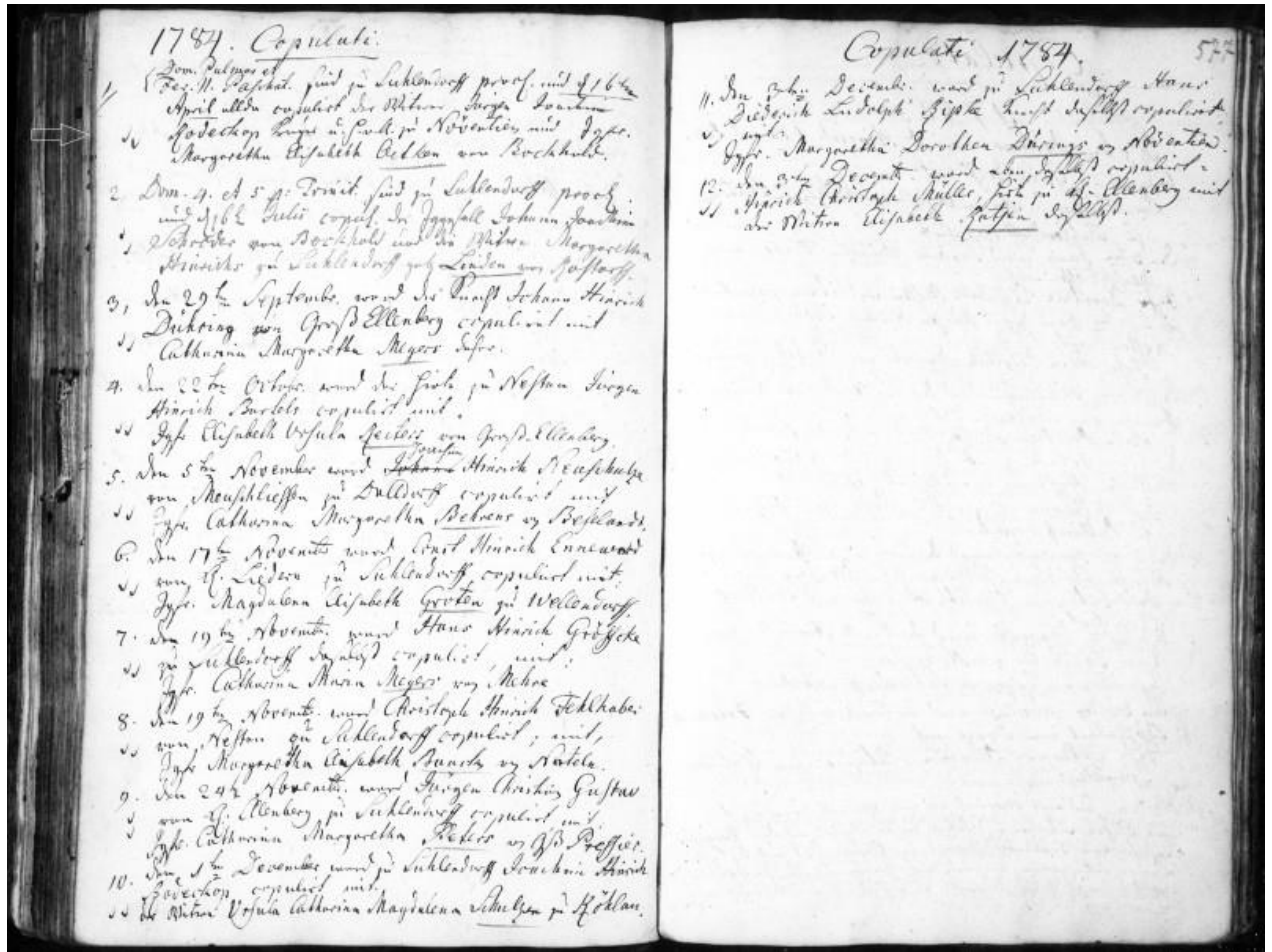 1784. Copulati.
Dom. Palmar. et
1, Fer. II. Paschat. sind zu Suhlendorff procl. und d 16ten
April allda copulirt der Witwer Jürgen Joachim
Godechop zu Növentien und Jgfr.
Margaretha Elisabeth Oetken von Bockhold.
2, Dom. 4. et 5 p. Trinit. sind zu Suhlendorff procl.
und d 16t Julii copul. der Jggesell Johann Joachim
Schröder von Bockhold und die Witwe Margaretha
Hinrichs zu Suhlendorff geb. Linden von Rostorff.
3, den 29ten Septembr. ward der Knecht Johann Hinrich
Dühring von Groß Ellenberg copulirt mit
Catharina Margaretha Meyers
4. den 22ten Octobr. ward der Hirte zu Nestau Jürgen
Hinrich Bartels copulirt mit
Jgfr Elisabeth Ursula Reiters von Groß-Ellenberg.
Joachim
5. den 5ten November ward Johann Hinrich Neuschulze
von zu Dalldorff copulirt mit
Jgfr. Catharina Margaretha Behrens
6. den 17ten Novembr ward Ernst Hinrich Enneward
von Kl. Liedern zu Suhlendorff copulirt mit:
Jgfr. Magdalena Elisabeth Groten zu Wellendorff
7. den 19ten Novembr. ward Hans Hinrich
zu Suhlendorff daselbst copulirt, mit:
Jgfr. Catharina Maria Meyers von Mehre
8. den 19ten Novembr. ward Christoph Hinrich Fehlhaber
von Nestau zu Suhlendorff copulirt, mit,
Jgfr Margaretha Elisabeth von Nateln.
9. den 24t Novembr. ward Jürgen Christian Gustav
von Kl. Ellenberg zu Suhlendorff copulirt mit
Jgfr. Catharina Margaretha Peters
10. den 1ten December ward zu Suhlendorff Joachim Hinrich
Godechop copulirt mit
der Witwe Ursula Catharina Magdalena Schultzen zu Köhlau.
Copulati 1784.
577
11. den Decembr. ward zu Suhlendorff Hans
Diederich Ludolph daselbst copulirt
mit
Jgfr. Margaretha Dorothea Dürings von Növentien.
12. den Decembr ward eben daselbst copulirt
Hinrich Christoph Müller, Hirte zu Kl. Ellenberg mit
der Witwe Elisabeth daselbst.